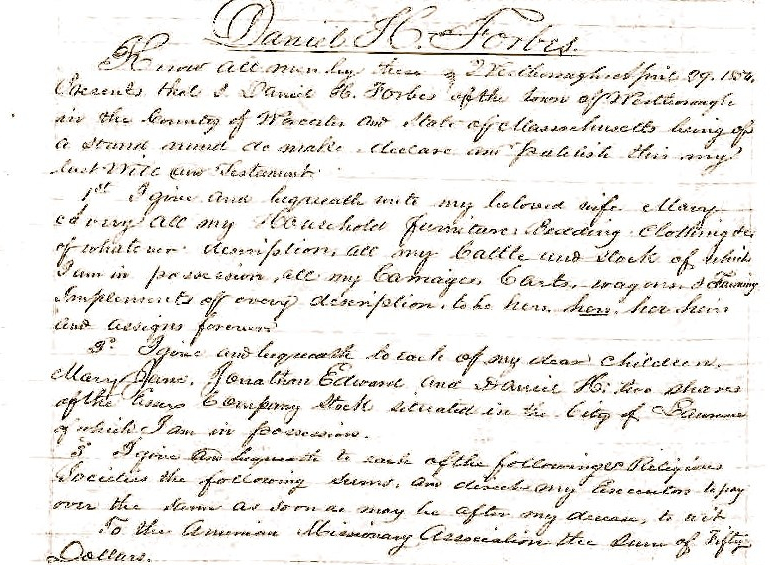 Daniel H. Forbes.
Know all men by these } Westborough April 29. 185
Presents that I Daniel H. Forbes of the town of Westborough
in the County of Worcester and State of Massachusetts being of
a stand mind do make declare and publish this my
last Will and Testament.
1st I give and bequeath unto my beloved wife Mary
all my Household furniture, Bedding, Clothing &c
of whatever description, all my Cattle and stock of which
I am in possession, all my Carriages, Carts, wagons, & Farming
Implements of every description, to be hers, hers, her heirs
and assigns forever.
I give and bequeath to each of my dear Children.
Mary Jane, Jonathan Edward and Daniel H. two shares
of the Essex Company Stock situated in the City of Lawrence
of which I am in possession.
3 I give and bequeath to each of the following Religious
Societies the following sums, and direct my Executors to pay
over the same as soon as may be after my decease, to wit
To the American Missionary Association the Sum of Fifty
Dollars.